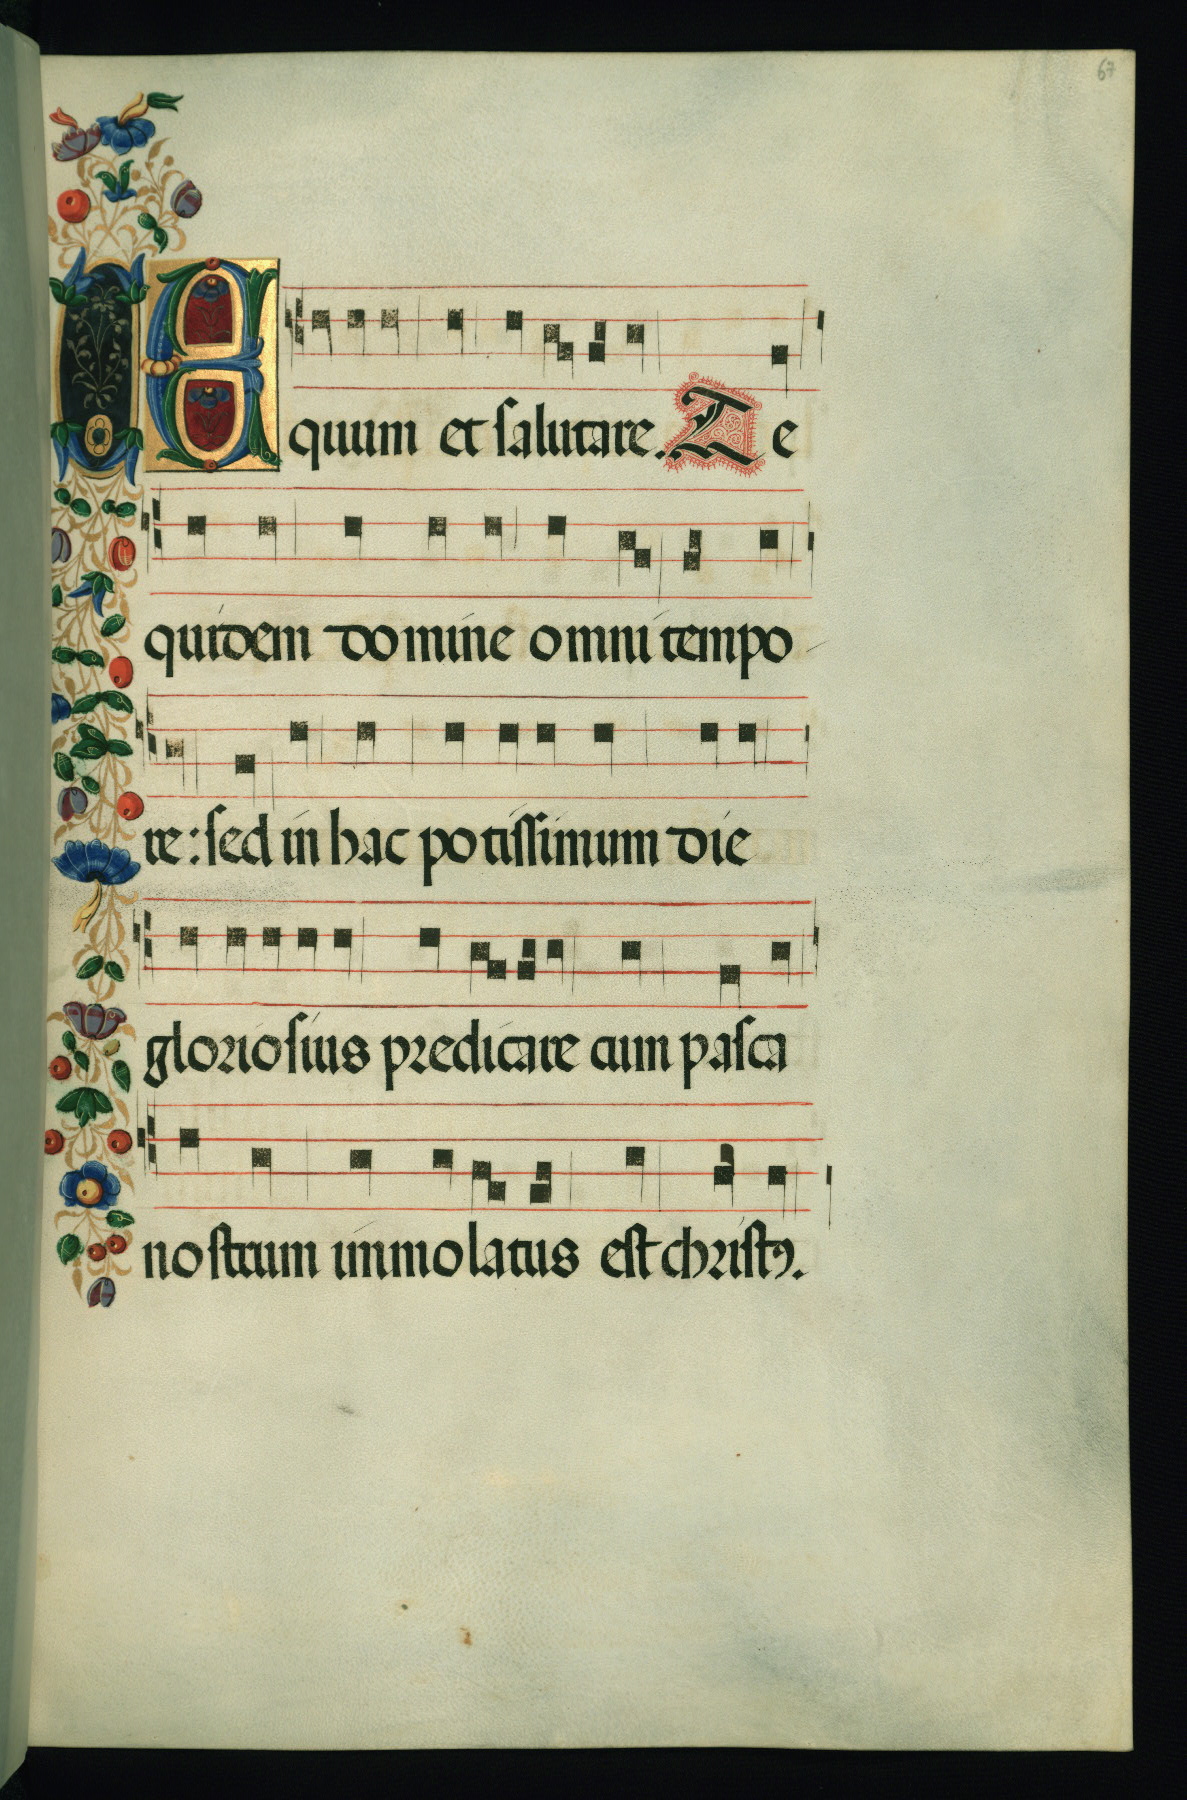 67
Equum et salutare. Te
quidem domine omni tempo
re: sed in hac potissimum die
gloriosius predicare cum pasca
nostrum immolatus est christꝰ.